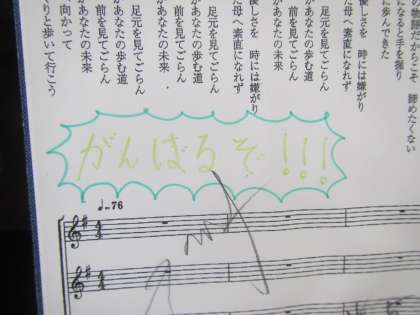 の物語だからこそ 諦めたくない
になると手を握り
に歩んできた
優しさを 時には嫌がり
た母へ素直になれず
足元を見てごらん
があなたの歩む道
前を見てごらん
があなたの未来
優しさを 時には嫌がり
た母へ素直になれず
足元を見てごらん
があなたの歩む道
前を見てごらん
があなたの未来
足元を見てごらん
があなたの歩む道
前を見てごらん
があなたの未来
向かって
りと歩いて行こう
がんばるぞ!!!
♩=76